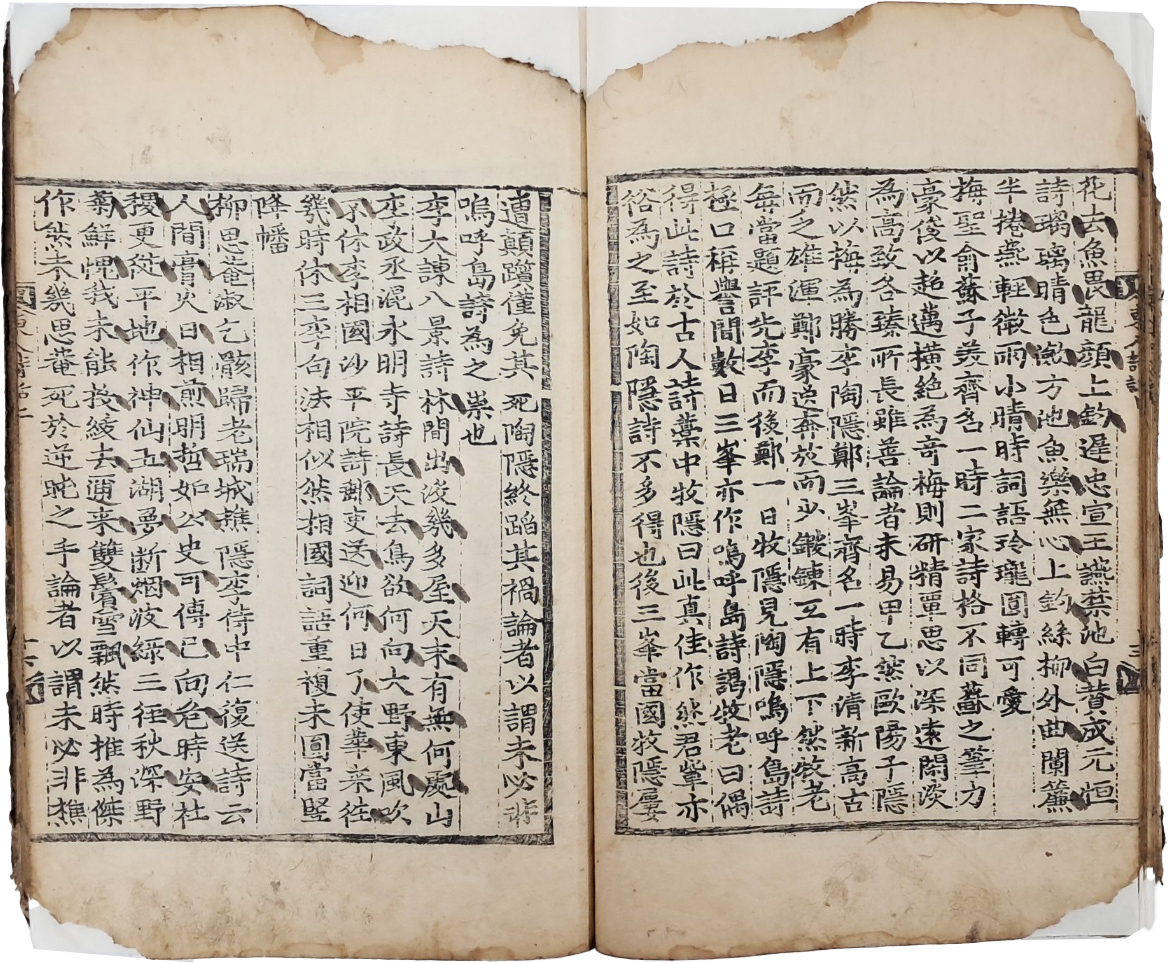 花去魚畏龍顔上釣遲忠宣王燕蘂池白賛成元恒
詩璃璃晴色漾方池魚樂無心上釣絲柳外曲闌簾
半捲燕輕微雨小晴時詞語玲瓏圓轉可愛
梅聖俞蘇子美齊名一時二家詩格不同蘇之筆力
豪俊以超邁橫絶為奇梅則研精覃思以深遠閑淡
為高致各臻所長雖善論者未易甲乙然歐陽子隱
然以梅為勝李陶隱鄭三峯齊名一時李清新高古
而乏雄渾鄭豪逸奔放而少鍛鍊互有上下然牧老
每當題評先李而後鄭一日牧隱見陶隱嗚呼島詩
極口稱譽間數日三峯亦作嗚呼島詩謁牧老曰偶
得此詩於古人詩藁中牧隱曰此真佳作然君輩亦
裕為之至如陶隱詩不多得也後三峯當國牧隱屢
東人詩話
遭顛躓僅免其死陶隱終蹈其禍論者以謂未必非
嗚呼島詩為之祟也
李大諫八景詩林間出沒幾多屋天末有無何處山
李政丞混永明寺詩長天去鳥欲何向大野東風吹
不休李相國沙平院詩郵吏送迎何日了使華来往
幾時休三李句法相似然相國詞語重複未圓當竪
降幡
柳思菴淑乞骸歸老瑞城樵隱李侍中仁復送詩云
人間膏火日相煎明哲如公史可傳已向危時安社
稷更從平地作神仙五湖夢断烟波綠三徑秋深野
菊鮮愧我未能投綬去邇来雙鬢雪飄然時推為傑
作然未幾思菴死於逆旽之手論者以謂未必非樵
東人詩話上
十六